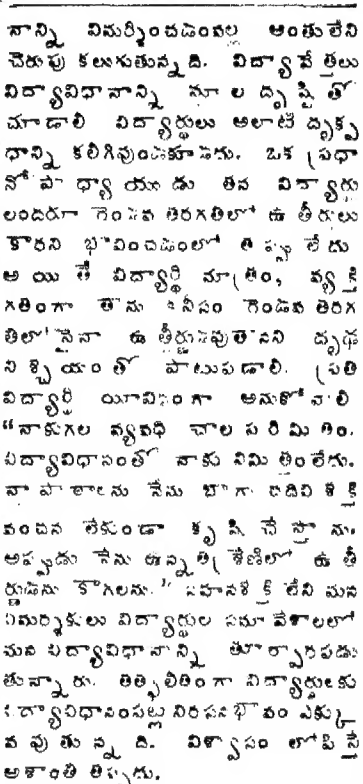 నాన్ని విమర్శించడంవల్ల అంతులేని
చెరుపు కలుగుతున్నది. విద్యావేత్తలు
విద్యావిధానాన్ని స్థూల దృష్టితో
చూడాలి విద్యార్థులు అలాటి దృక్ప
ధాన్ని కలిగివుండకూడదు. ఒక ప్రధా
నోపాధ్యాయుడు తన విద్యార్థు
లందరూ రెండవ తరగతిలో ఉత్తీర్ణులు
కారని భావించడంలో తప్పు లేదు
అయితే విద్యార్థి మాత్రం, వ్యక్తి
గతంగా తాను కనీసం రెండవ తరగ
తిలోనైనా ఉత్తీర్ణుడవుతానని దృఢ
నిశ్చయంతో పాటుపడాలి. ప్రతి
విద్యార్థి యీవిధంగా అనుకోవాలి
“నాకుగల వ్యవధి చాల పరిమితం.
విద్యావిధానంతో నాకు నిమిత్తంలేదు.
నా పాఠాలను నేను బాగా చదివి శక్తి
వంచన లేకుండా కృషి చేస్తాను.
అప్పుడు నేను ఉన్నతశ్రేణిలో ఉత్తీ
ర్ణుడను కాగలను.” సహనశక్తి లేని మన
విమర్శకులు విద్యార్థుల సమావేశాలలో
మన విద్యావిధానాన్ని తూర్పారపడు
తున్నారు. తత్ఫలితంగా విద్యార్థులకు
విద్యావిధానంపట్ల నిరసనభావం ఎక్కు
వవుతున్నది. విశ్వాసం లోపిస్తే
అశాంతి తప్పదు.